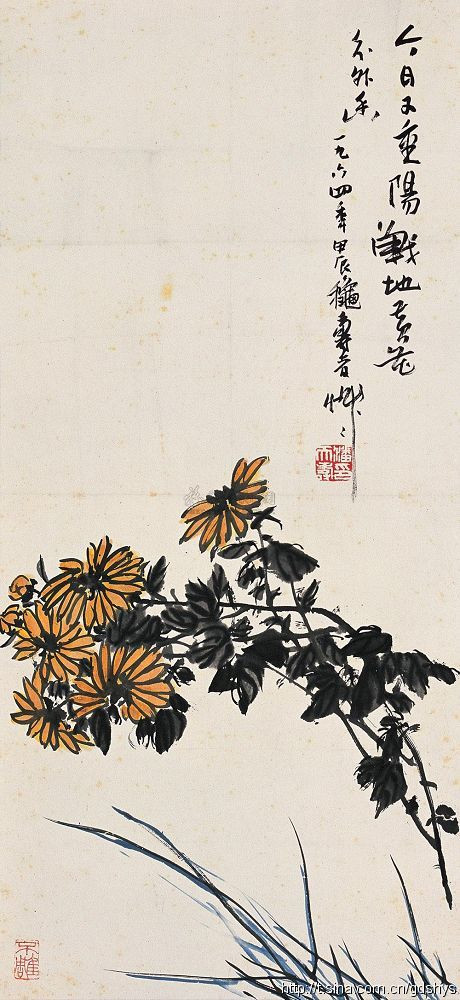 今日又重陽戰地黃花
分外香一九六四年甲辰穐壽者
潘天壽印
不雕
http://t.sina.com.cn/gdshys